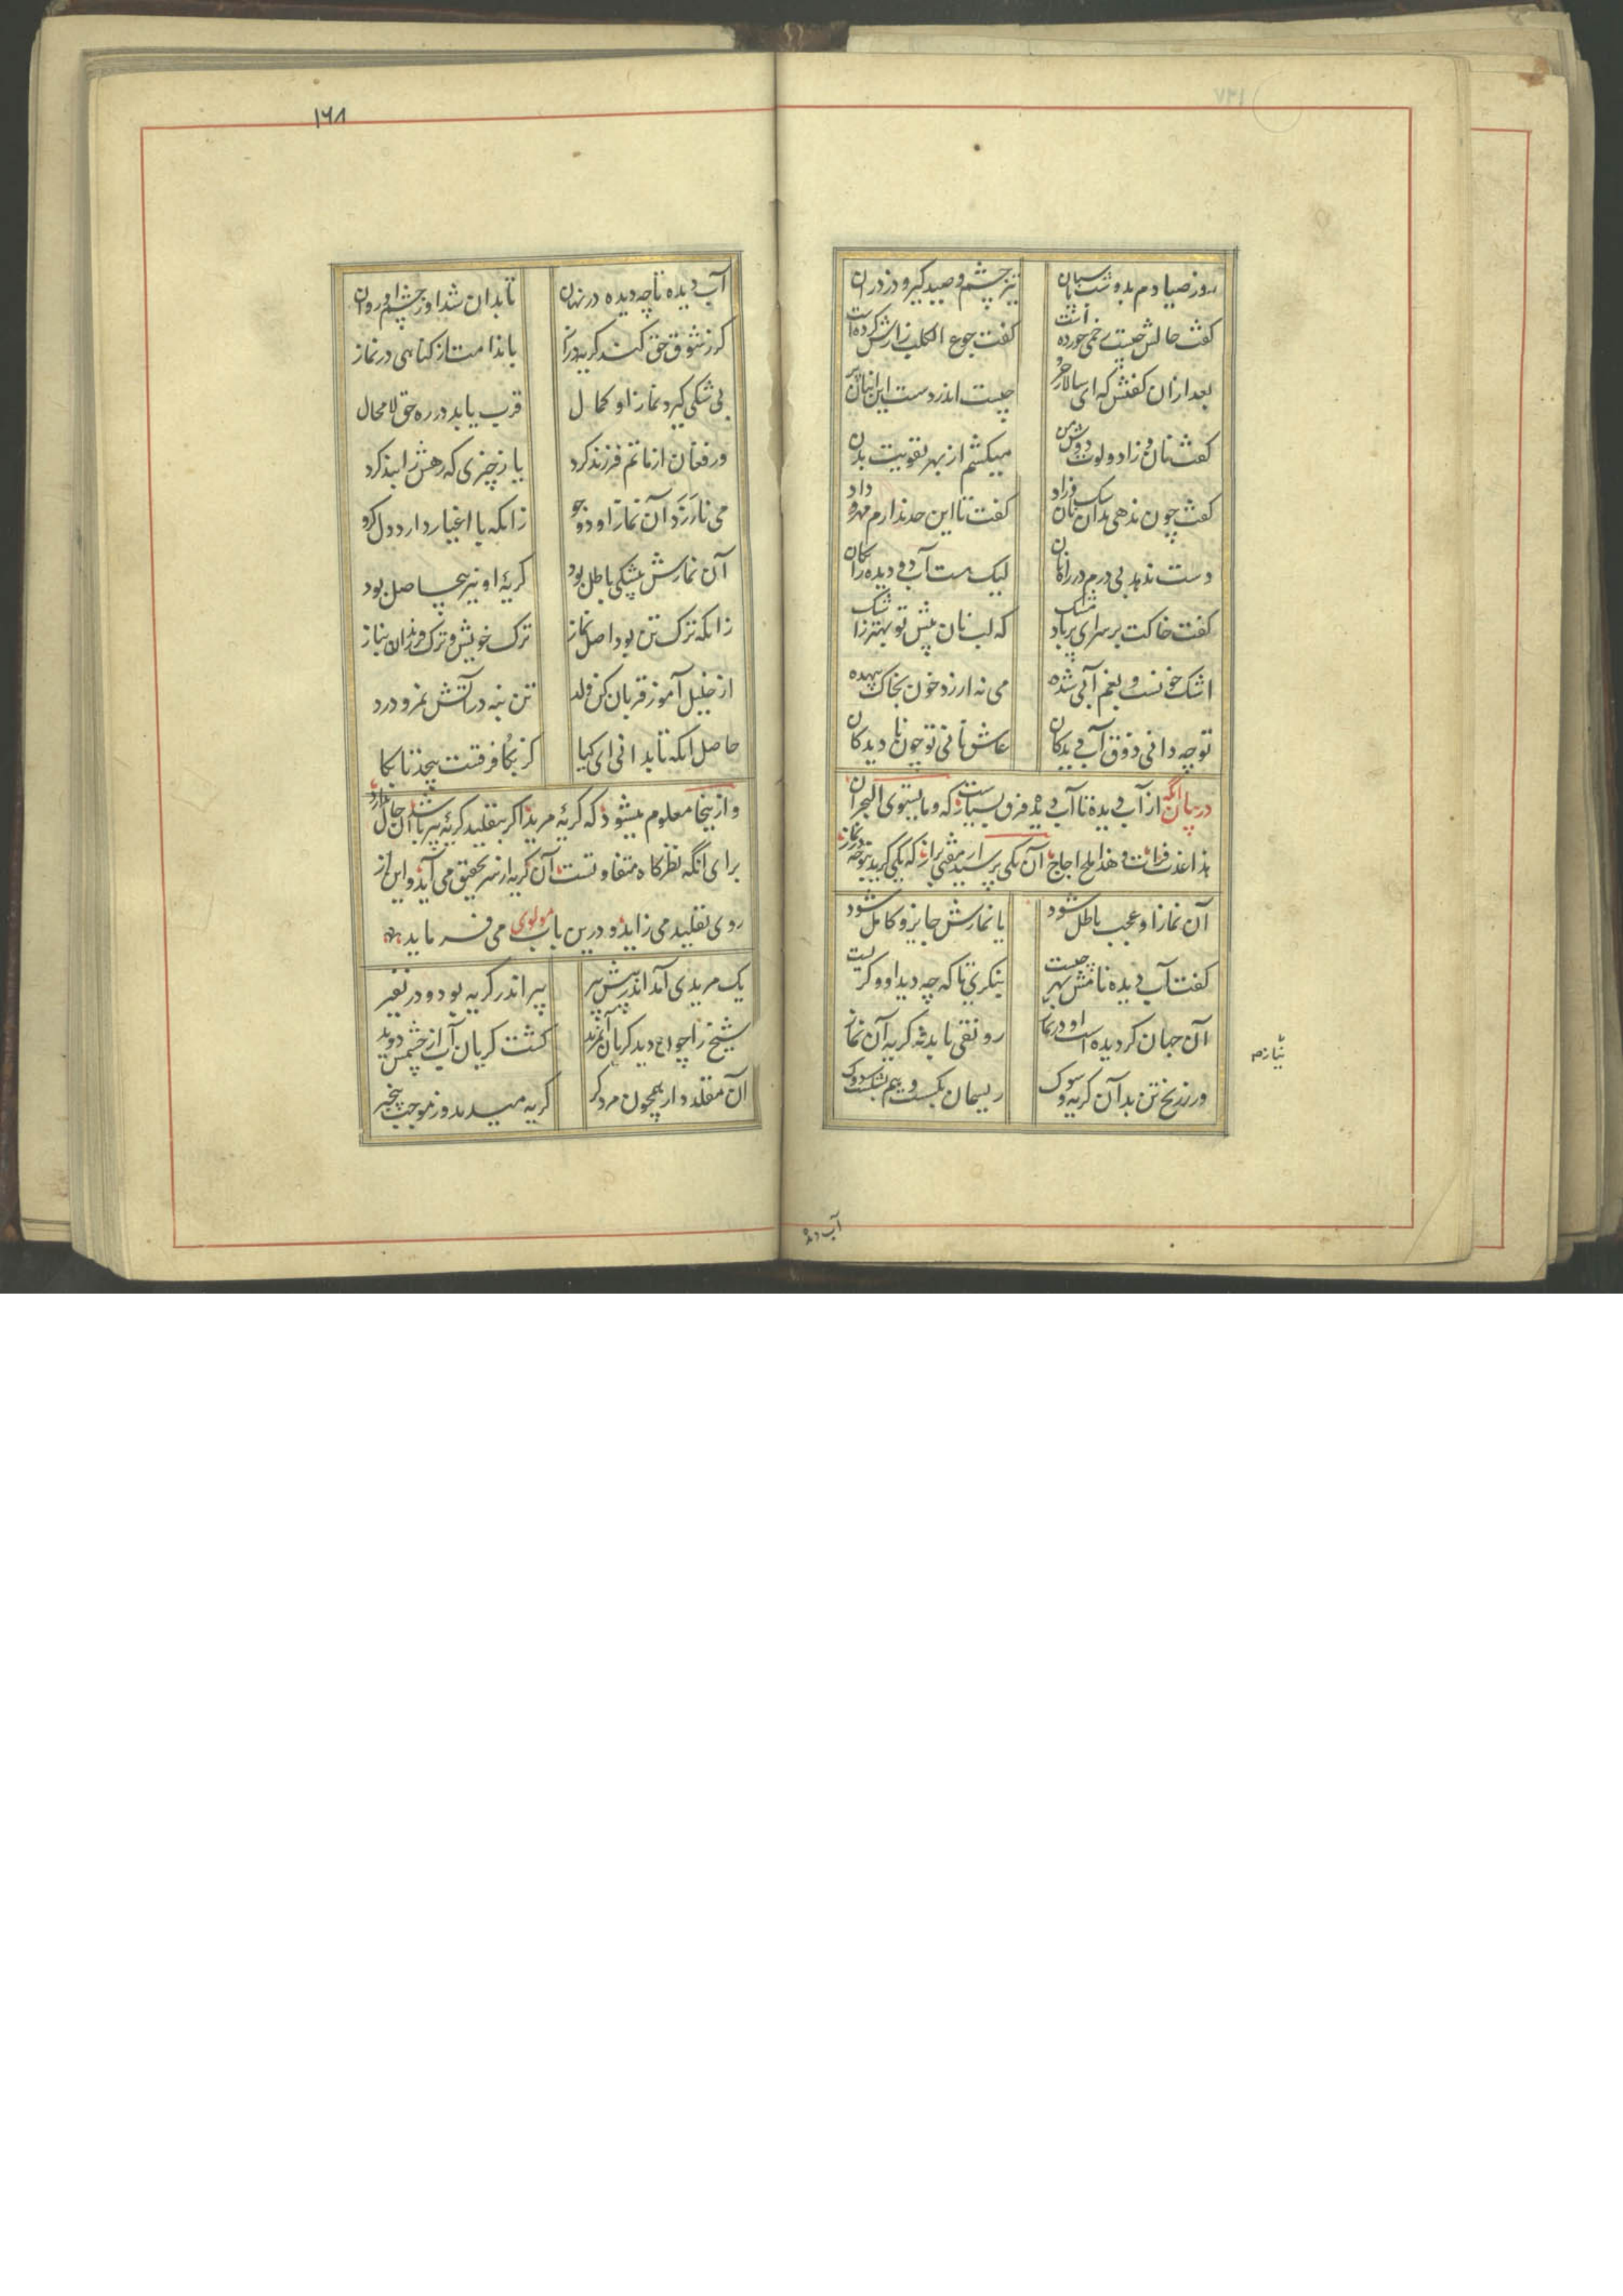 روز صیادم بدو شب پاسبان
تیز چشم و صید گیر و دزدران
گفت حالش چیست زخمی خورده است
گفت جوع الکلب زارش کرده است
بعد ازان گفتش که ای سالار حر
چیست اندر دست این انبان پر
گفت نان و زاد و لوت دوش من
میکشم از بهر تقویت بدن
گفت چون ندهی بدان سگ نان و زاد
گفت تا این حد ندارم مهر و داد
دست ندهد بی درم در راه نان
لیک هست آب دو دیده رایگان
گفت خاکت بر سر ای پر باد مشک
که لب نان پیش تو بهتر ز اشک
اشک خونست و بغم آبی شده
می نه ارزد خون بخاک بیهده
تو چه دانی ذوق آب دیدگان
عاشق نانی تو چون نادیدگان
در بیان آنکه از آب دیده تا آب دیده فرق بسیار است که و ما یستوی البحران
هذا عذب فرات و هذا ملح اجاج آن یکی پرسید از مفتی براز که یکی گرید بنوحه در نماز
آن نماز او عجب باطل شود
یا نمازش جایز و کامل شود
گفت آب دیده نامش بهر چیست
بنگری تا که چه دید او و گریست
آن جهان گر دیده است او در نماز
رونقی یابد ز گریه آن نماز
ور ز رنج تن بد آن گریه و سوک
ریسمان بگسست و هم بشکست دوک
نیاز م
آب دیده
۱۶۸
آب دیده تا چه دیده در نهان
تا بدان شد او ز چشم او روان
گر ز شوق حق کند گریه دراز
یا ندامت از گناهی در نماز
بی شکی گیرد نماز او کمال
قرب یابد در ره حق لا محال
ور فغان از ماتم فرزند کرد
یا ز چیزی که رهش را بند کرد
می نارزد آن نماز او دو جو
زانکه با اغیار دارد دل گرو
آن نمازش بیشکی باطل بود
گریهٔ او نیز بیحاصل بود
زانکه ترک تن بود اصل نماز
ترک خویش و ترک فرزندان بناز
از خلیل آموز قربان کن ولد
تن بنه در آتش نمرود رد
حاصل آنکه تا بدانی ای کیا
کز بکا فرقست بیحد تا بکا
و از ینجا معلوم میشود که گریهٔ مرید اگر بتقلید گریهٔ پیر باشد آن حال ندارد
برای آنکه نظرگاه متفاوتست آن گریه از سر تحقیق می آید و این از
روی تقلید می زاید و درین باب مولوی می فرماید
یک مریدی آمد اندر پیش پیر
پیر اندر گریه بود و در نفیر
شیخ را چون دید گریان آن مرید
گشت گریان آب از چشمش دوید
آن مقلدوار همچون مرد کر
گریه میدید و ز موجب بیخبر